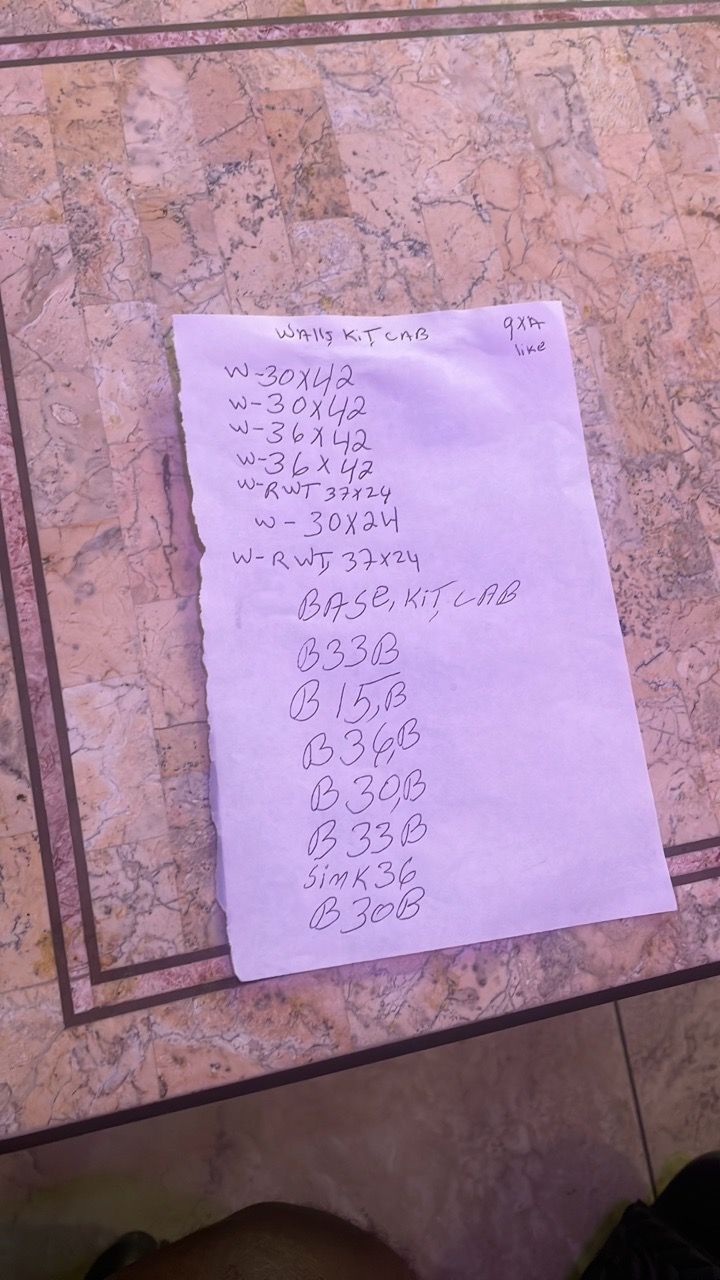 WAllS KiT CAB
9XA
like
W-30X42
W-30X42
W-36X42
W-36X42
W-RWT 37X24
W-30X24
W-RWT, 37X24
BASe, KiT, CAB
B33B
B15,B
B36,B
B30,B
B33B
SinK36
B30B